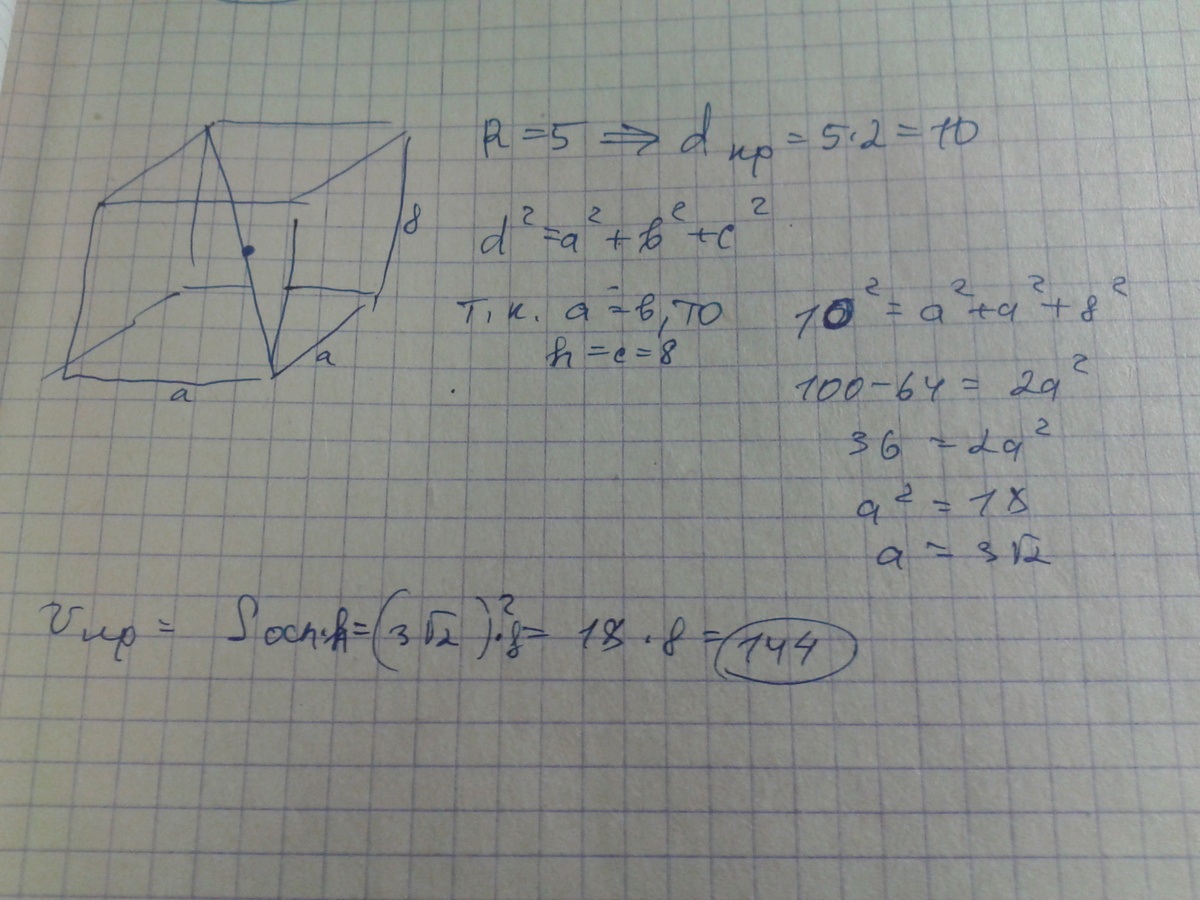 R = 5 ⟹ d пр = 5·2 = 10
8
d² = a² + b² + c²
т.к. a = b, то
h = c = 8
10² = a² + a² + 8²
a
a
100 - 64 = 2a²
36 = 2a²
a² = 18
a = 3√2
Vпр = Sосн·h = (3√2)²·8 = 18·8 = 144